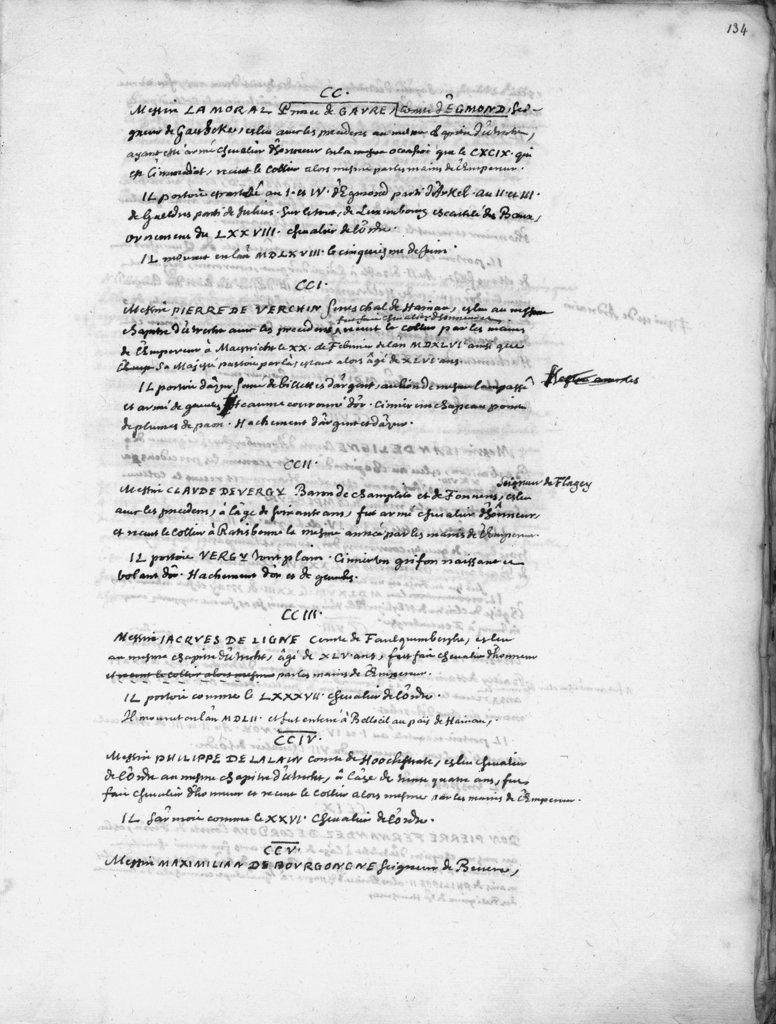 134
CC.
Messire LAMORAL Prince de GAVRE, Comte d'EGMOND, Sei-
gneur de Gaesbeke, esleu avec les precedens au mesme chapitre d'Utrecht,
ayant esté armé chevalier d'honneur en la mesme occasion que le CXCIX. qui
est l'immediat, receut le collier alors mesme par les mains de l'Empereur.
IL portoit escartelé au I. et IV. d'Egmond parti d'Arkel. Au II. et III.
de Gueldres parti de Juliers. Sur le tout, de Luxembourg escartelé des Baux,
ornement du LXXVIII. chevalier de l'ordre.
IL mourut en l'an MDLXVIII. le cinquiesme de Juin.
CCI.
Messire PIERRE DE VERCHIN Seneschal de Hainau, esleu au mesme
chapitre d'Utrecht avec les precedens, fut fait chevalier d'honneur et
receut le collier par les mains
de l'Empereur à Maestricht le XX. de Febvrier de l'an MDXLVI. ainsi que
Sa Majesté passoit par là; estant alors âgé de XLVI. ans.
IL portoit d'azur semé de billettes d'argent, au lion de mesme lampassé
et armé de gueules. Heaume couronné d'or. Cimier un chapeau
de plumes de paon. Hachement d'argent et d'azur.
CCII.
Seigneur de Flagey
Messire CLAUDE DE VERGY Baron de Champlite et de Fonvens, esleu
avec les precedens, à l'âge de soixante ans, fut armé chevalier d'honneur,
et receut le collier à Ratisbonne la mesme année par les mains de l'Empereur.
IL portoit VERGY tout plain. Cimier un grifon naissant et
volant d'or. Hachement d'or et de gueules.
CCIII.
Messire IACQVES DE LIGNE Comte de Faulquemberghe, esleu
au mesme chapitre d'Utrecht, âgé de XLV. ans, fut fait chevalier d'honneur
et receut le collier alors mesme par les mains de l'Empereur.
IL portoit comme le LXXXVII. chevalier de l'ordre.
Il mourut en l'an MDLII. et fut enterré à Belloeil au païs de Hainau.
CCIV.
Messire PHILIPPE DE LALAIN Comte de Hoochstrate, esleu chevalier
de l'ordre au mesme chapitre d'Utrecht, à l'âge de trente quatre ans, fut
fait chevalier d'honneur et receut le collier alors mesme par les mains de l'Empereur.
IL s'armoit comme le XXVI. chevalier de l'ordre.
CCV.
Messire MAXIMILIAN DE BOVRGONGNE Seigneur de Bevere,